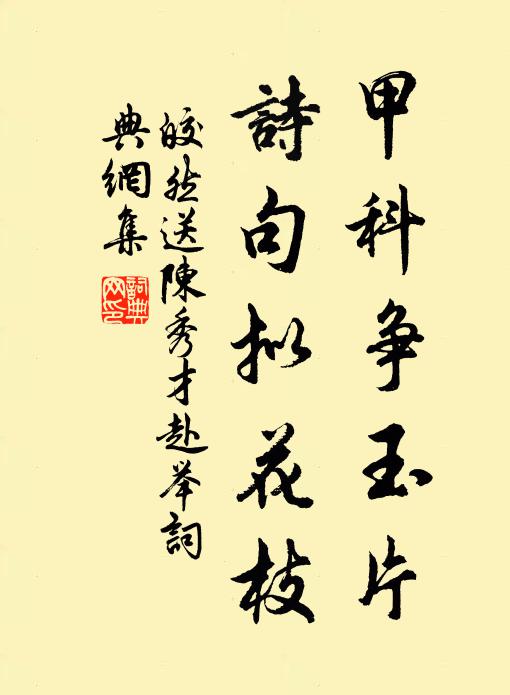 甲科争玉片
詩句拟花枝
皎然送陳秀才赴举詞
典網集
詞典网印